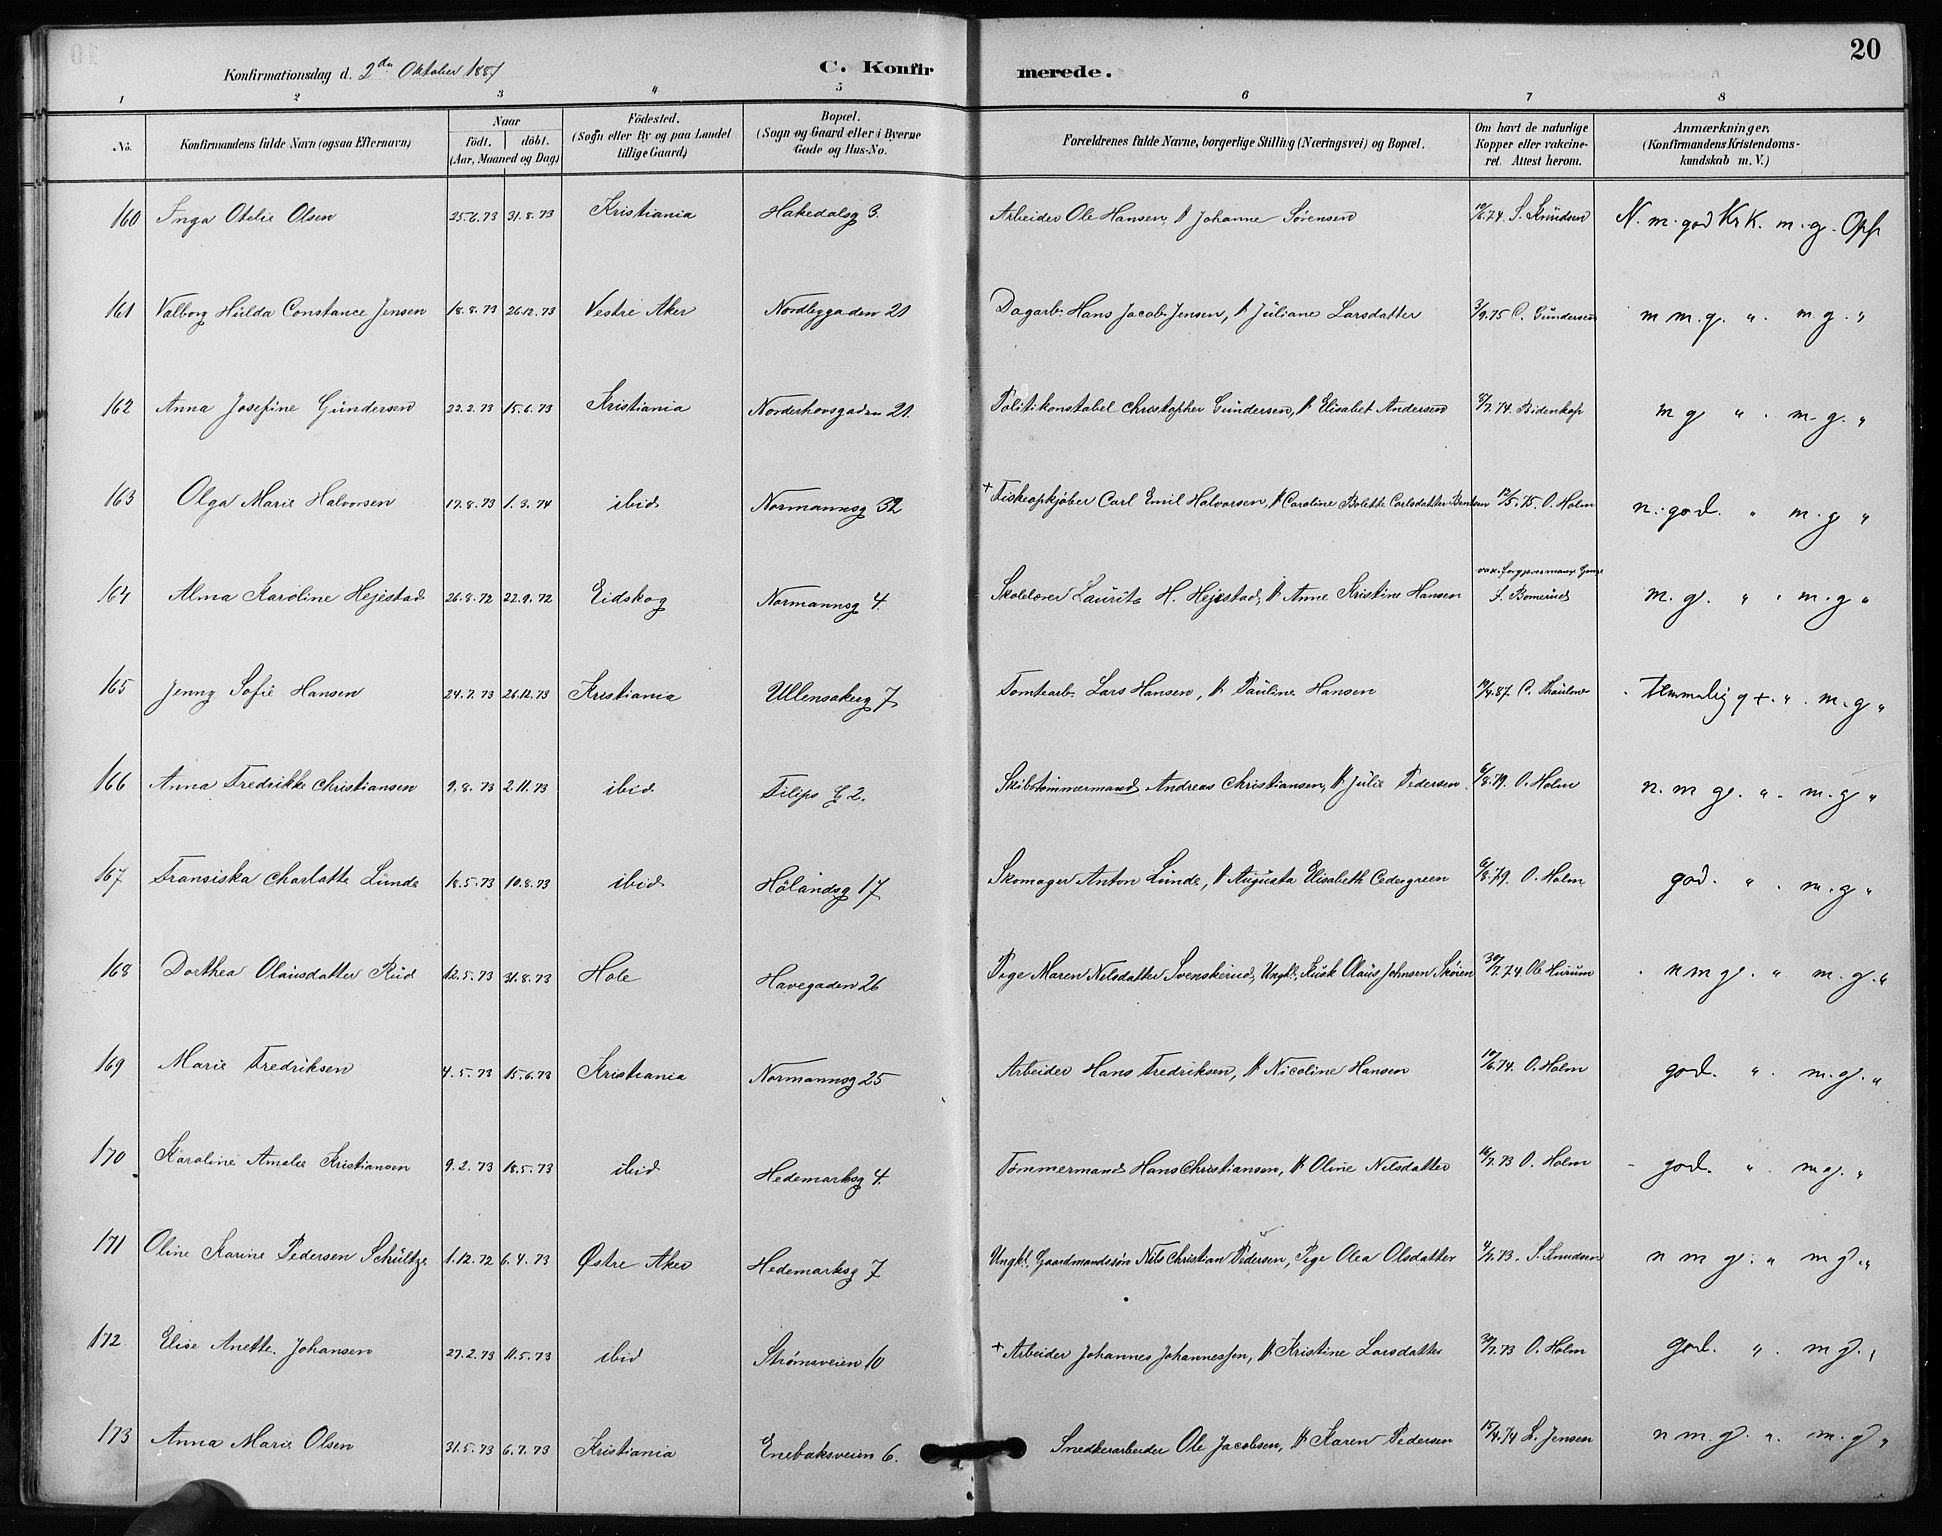 20
Konfirmationsdag d. 2den Oktober 1887
C. Konfirmerede.
1 2 3 4 5 6 7 8
No.
Konfirmandens fulde Navn (ogsaa Efternavn)
Naar
födt. döbt.
(Aar, Maaned og Dag)
Födested.
(Sogn eller By og paa Landet
tillige Gaard)
Bopæl.
(Sogn og Gaard eller i Byerne
Gade og Hus-No.
Forældrenes fulde Navne, borgerlige Stilling (Næringsvei) og Bopæl.
Om havt de naturlige
Kopper eller vakcine-
ret. Attest herom.
Anmærkninger,
(Konfirmandens Kristendoms-
kundskab m. V.)
160 Inga Otelie Olsen 25.6.73 31.8.73 Kristiania Hakedalsg 3. Arbeider Ole Hansen, Johanne Sørensen 10/6.74 S. Knudsen N. m. god Kr K. m. g. Opf
161 Valborg Hulda Constance Jensen 18.8.73 26.12.73 Vestre Aker Nordbygaden 21 Dagarb. Hans Jacob Jensen, Juliane Larsdatter 3/9.75 C. Gundersen m m.g. " . m g. "
162 Anna Josefine Gundersen 22.2.73 15.6.73 Kristiania Norderhovsgaden 21. Politikonstabel Christopher Gundersen, Elisabet Andersen 8/7.74. Bidenkap m g " . m.g. "
163 Olga Marie Halvorsen 17.8.73 1.3.74 ibid Normannsg 32 + Fiskeopkjøber Carl Emil Halvorsen, Caroline Bolette Carlsdatter Bentsen 12/5.75. O. Holm n. god. " m.g "
164 Alma Karoline Hejestad 26.8.72 22.9.72 Eidskog Normannsg 4. Skolelærer Laurits H. Hejestad, Anne Kristine Hansen S. Bomerud m. g. " . m.g "
165 Jenny Sofie Hansen 24.7.73 26.12.73 Kristiania Ullensakerg 7 Tomtearb. Lars Hansen, Pauline Hansen 19/4.87. C. Thaulow Temmelig g +. " . m.g "
166 Anna Fredrikke Christiansen 9.8.73 2.11.73 ibid Filips G 2. Skibstømmermand Andreas Christiansen, Julie Pedersen. 6/8.79. O. Holm n. m g. " . m.g "
167 Fransiska Charlotte Lunde 18.5.73 10.8.73 ibid Hölandsg 17 Skomager Anton Lunde, Augusta Elisabeth Cedergreen 6/8.79. O. Holm god. " . m.g "
168 Dorthea Olausdatter Rud 12.5.73 31.8.73 Hole Havegaden 26 Pige Maren Nilsdatter Svenskerud, Ungkl. Kusk Olaus Johnsen Skøien 30/7.74. Ole Hurum n m g. " m. g. "
169 Marie Fredriksen 4.5.73 15.6.73 Kristiania Normannsg 25 Arbeider Hans Fredriksen, Nicoline Hansen 10/6.74. O. Holm god. " . m.g. "
170 Karoline Amalie Kristiansen 9.2.73 18.5.73 ibid Hedemarksg 4. Tømmermand Hans Christiansen, Oline Nilsdatter 16/7.73 O. Holm god. " . m g. "
171 Oline Karine Pedersen Schultze 1.12.72 6.4.73 Østre Aker Hedemarksg 7 Ungkl. Gaardmandssøn Nils Christian Pedersen, Pige Olea Olsdatter 9/7.73. S. Knudsen n m g. " m g. "
172 Elise Anette Johansen 27.2.73 11.5.73 ibid Strømsveien 10 + Arbeider Johannes Johannessen, Kristine Larsdatter 30/7.73 O. Holm god. " . m g. "
173 Anna Marie Olsen 31.5.73 6.7.73 Kristiania Enebaksveien 6. Snedkerarbeider Ole Jacobsen, Karen Pedersen 15/4.74 L. Jensen n m.g. " . m.g "